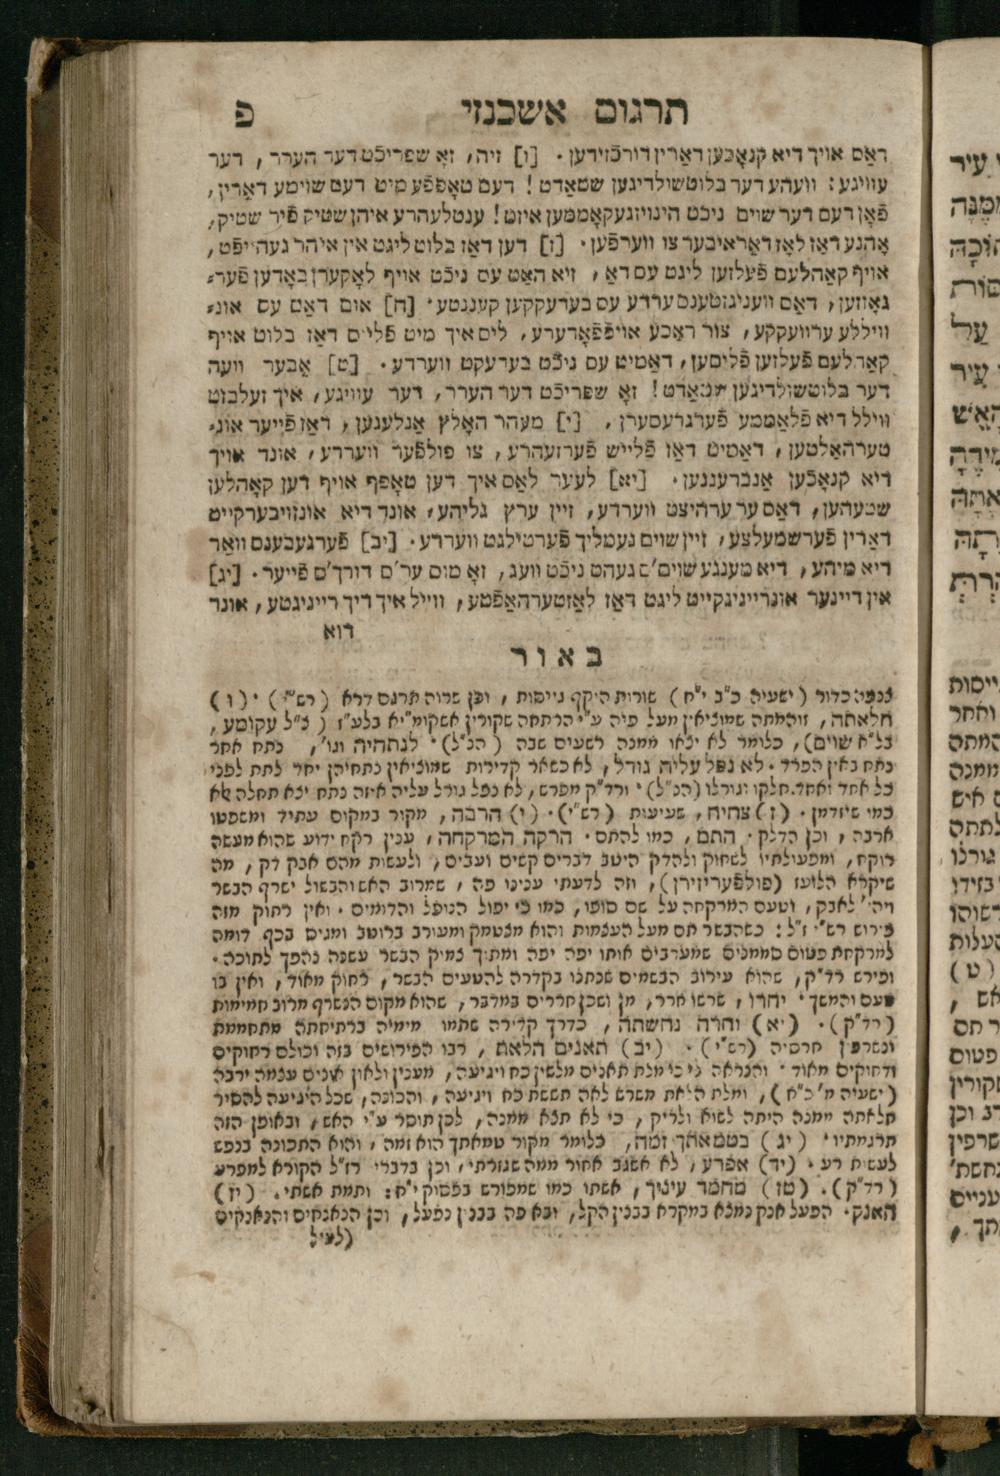 תרגום אשכנזי פ
דאס אויך דיא קנאָכען דארין דורכזידען. [ו] זיה, זאָ שפריכט דער הערר, דער
עוויגע: וועהע דער בלוטשולדיגען שטאַדט! דעם טאָפפֿע מיט דעם שוימע דארין,
פֿאָן דעם דער שוים ניכט הינויזגעקאָממען איזט! ענטלעהרע איהן שטיק פֿיר שטיק,
אָהנע דאז לאָז דאַראיבער צו ווערפֿען. [ז] דען דאז בלוט ליגט אין איהר געהייפֿט,
אויף קאַהלעם פֿעלזען ליגט עס דאַ, זיא האַט עס ניכט אויף לאָקערן באָדען פֿער־
גאָזען, דאַס וועניגזטענס ערדע עס בערעקקען קעננטע. [ח] אום דאַס עס אונ־
ווילללע ערוועקקע, צור ראַכע אויפֿפֿאָדערע, ליס איך מיט פֿלייס דאז בלוט אויף
קאַהלעם פֿעלזען פֿליסען, דאַמיט עס ניכט בעדעקט ווערדע. [ט] אָבער וועה
דער בלוטשולדיגען שטאַדט! זאָ שפריכט דער הערר, דער עוויגע, איך זעלבזט
ווילל דיא פֿלאַממע פֿערגרעסערן. [י] מעהר האָלץ אַנלעגען, דאז פֿייער אונ־
טערהאַלטען, דאַמיט דאז פֿלייש פֿערזעהרע, צו פולפֿער ווערדע, אונד אויך
דיא קנאָכען אַנברעננען. [יא] לעער לאַס איך דען טאָפף אויף דען קאָהלען
שטעהען, דאַס ער ערהיצט ווערדע, זיין ערץ גליהע, אונד דיא אונזויבערקייט
דארין פֿערשמעלצע, זיין שוים נעמליך פֿערטילגט ווערדע. [יב] פֿערגעבענס וואַר
דיא מיהע, דיא מענגע שוים'ס געהט ניכט וועג, זאָ מוס ער'ס דורך'ס פֿייער. [יג]
אין דיינער אונרייניגקייט ליגט דאז לאַזטערהאַפֿטע, ווייל איך דיך רייניגטע, אונד
דוא
באור
כמו כדור (ישעיה כ"ב י"ח) שורות היקף גייסות, וכן שרוה תרגם דרא (רש"י). (ו)
חלאתה, זוהמתה שמוציאין מעל פיה ע"י הרתחה שקורין אשקומ"יא בלע"ז (נ"ל עקומע,
בל"א שוים), כלומר לא יצאו ממנה רשעים שבה (הנ"ל). לנתחיה וגו', נתח אחר
נתח באין הפרד. לא נפל עליה גורל, לא כשאר קדירות שמוציאין נתחיהן יחד לתת לפני
כל אחד ואחד חלקו וגורלו (הנ"ל). ורד"ק מפרש, לא נפל גורל עליה איזה נתח יצא תחלה אלא
כמו שיזדמן. (ז) צחיח, שעיעות (רש"י). (י) הרבה, מקור במקום עתיד ומשפטו
ארבה, וכן הדלק. התם, כמו להתם. הרקה המרקחה, ענין רקח ידוע שהוא מעשה
רוקח, ומפעולתיו לשחוק ולהדק היטב דברים קשים ועבים, ולעשות מהם אבק דק, מה
שיקרא הלועז (פולפֿעריזירן), וזה לדעתי ענינו פה, שמרוב האש והבשול ישרף הבשר
ויהי' לאבק, וטעם המרקחה על שם סופו, כמו כי יפול הנופל והדומים. ואין רחוק מזה
פירוש רש"י ז"ל: כשהבשר תם מעל העצמות והוא מצטמק ומעורב ברוטב ומגיס בכף דומה
למרקחת פטום סממנים שמערבים אותו יפה יפה ומתוך נמיק הבשר עצמה נהפך לתוכה.
ופירש רד"ק, שהוא עירוב הבשמים שנתנו בקדרה להטעים הבשר, רחוק מאוד, ואין בו
טעם והמשך. יחרו, שרשו חרר, מן ושכן חררים במדבר, שהוא מקום הנשרף מרוב חמימות
(רד"ק). (יא) וחרה נחשתה, כדרך קדירה שתמו מימיה ברתיחתה מתחממת
ונשרפין חרסיה (רש"י). (יב) תאנים הלאת, רבו הפירושים בזה וכולם רחוקים
ודחוקים מאוד. והנראה לי כי מלת תאנים מלשון כח ויגיעה, מענין ולאין אונים עצמה ירבה
(ישעיה מ' כ"ט), ומלת הלאת משרש לאה תששת כח ויגיעה, והכונה, שכל היגיעה להסיר
חלאתה ממנה היתה לשוא ולריק, כי לא תצא ממנה, לכן תוסר ע"י האש, ובאופן הזה
תרגמתיו. (יג) בטמאתך זמה, כלומר מקור טמאתך הוא זמה, והוא התכונה בנפש
לעשות רע. (יד) אפרע, לא אשוב אחור ממה שגזרתי, וכן בדברי רז"ל הקורא למפרע
(רד"ק). (טז) מחמד עיניך, אשתו כמו שמפורש בפסוק י"ח: ותמת אשתי. (יז)
האנק. הפעל אנק נמצא במקרא בבנין הקל, ובא פה בבנין נפעל, וכן הנאנחים והנאנקים
(לעיל